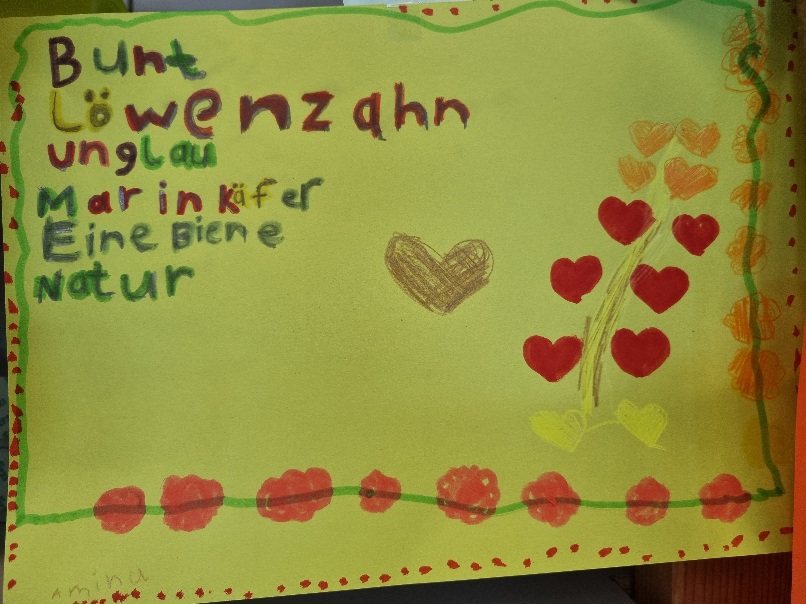 Bunt
Löwenzahn
unglau
Marinkäfer
Eine Biene
Natur
Amina